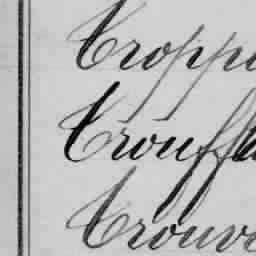 Tropp
Trouff
Trouv